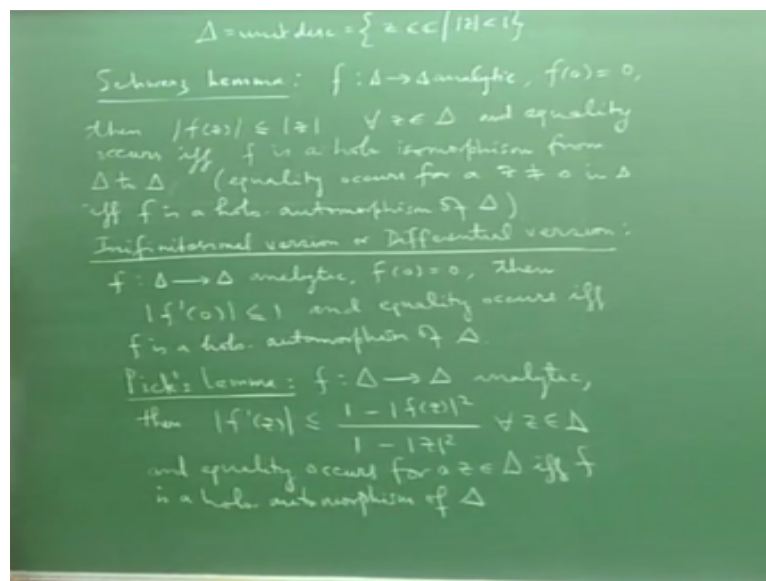 Δ = unit disc = { z ∈ ℂ | |z| < 1 }
Schwarz Lemma : f : Δ → Δ analytic, f(0) = 0,
then |f(z)| ≤ |z| ∀ z ∈ Δ and equality
occurs iff f is a holo isomorphism from
Δ to Δ (equality occurs for a z ≠ 0 in Δ
iff f is a holo. automorphism of Δ)
Infinitesimal version or Differential version :
f : Δ → Δ analytic, f(0) = 0, then
|f'(0)| ≤ 1 and equality occurs iff
f is a holo. automorphism of Δ.
Pick's Lemma : f : Δ → Δ analytic,
then |f'(z)| ≤ (1 - |f(z)|²) / (1 - |z|²) ∀ z ∈ Δ
and equality occurs for a z ∈ Δ iff f
is a holo. automorphism of Δ